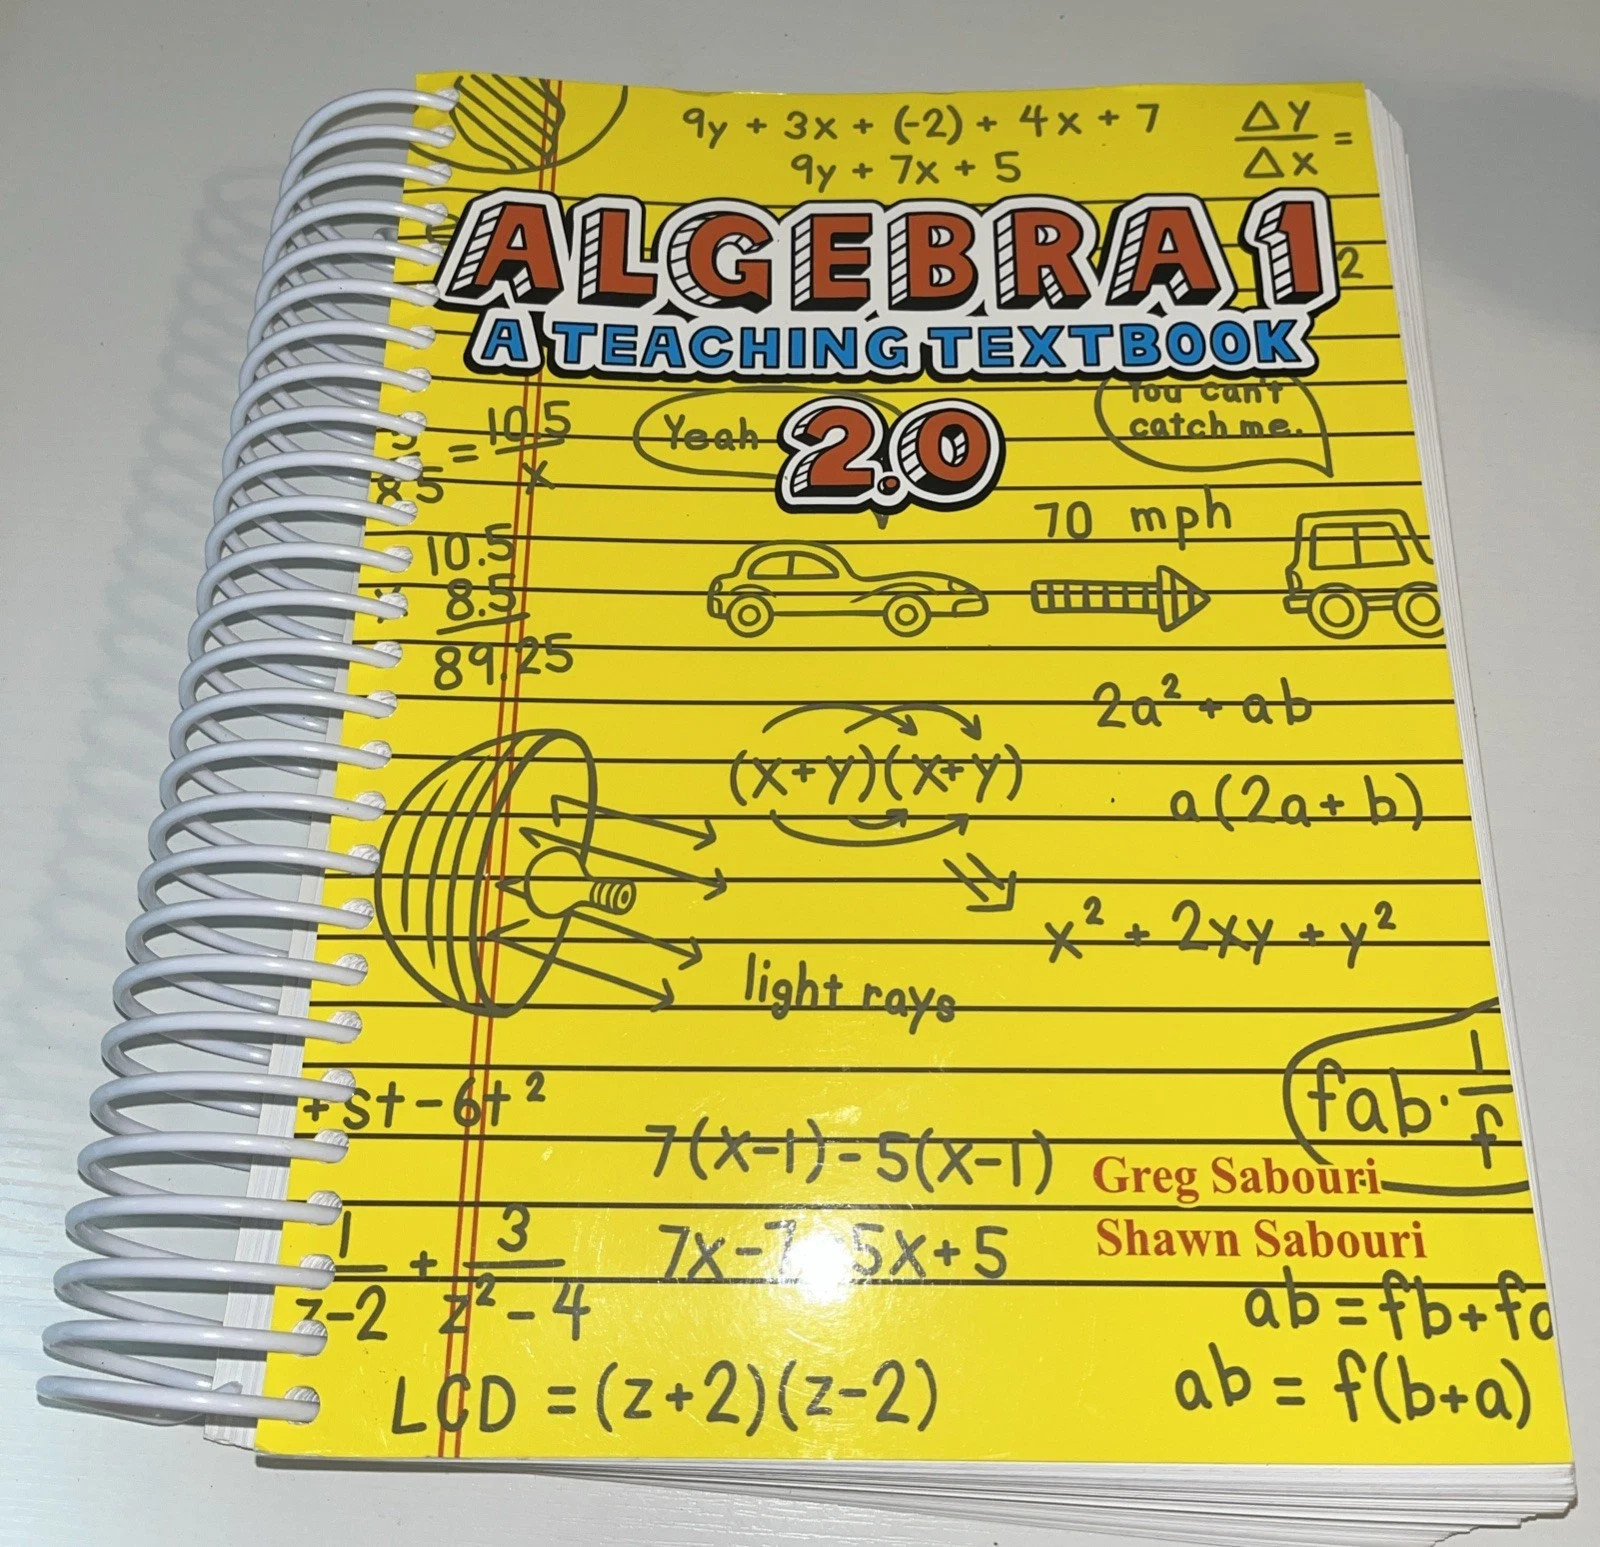 9y + 3x + (-2) + 4x + 7
9y + 7x + 5
ΔY
Δx
=
ALGEBRA 1
2
A TEACHING TEXTBOOK
2.0
Yeah
You can't
catch me.
= 10.5
x
70 mph
10.5
8.5
89.25
2a² + ab
(x+y)(x+y)
a(2a+b)
x² + 2xy + y²
light rays
fab · 1
f
+ st - 6t²
7(x-1) - 5(x-1)
Greg Sabouri
Shawn Sabouri
1 + 3
z-2 z²-4
7x-7 5x+5
ab = fb+fa
LCD = (z+2)(z-2)
ab = f(b+a)